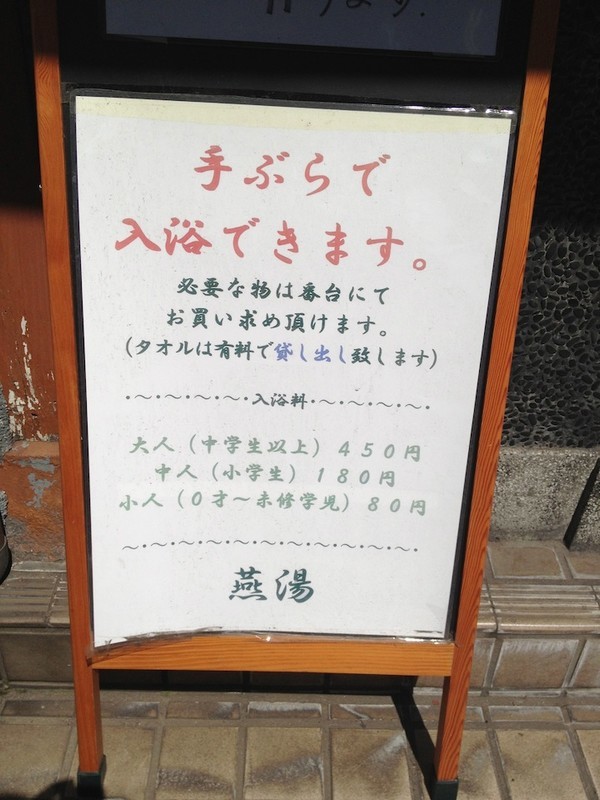 ます.
手ぶらで
入浴できます。
必要な物は番台にて
お買い求め頂けます。
(タオルは有料で貸し出し致します)
・～・～・～・～・入浴料・～・～・～・～・
大人(中学生以上)450円
中人(小学生)180円
小人(0才～未修学児)80円
～・～・～・～・～・～・～・～・～・～・
燕湯